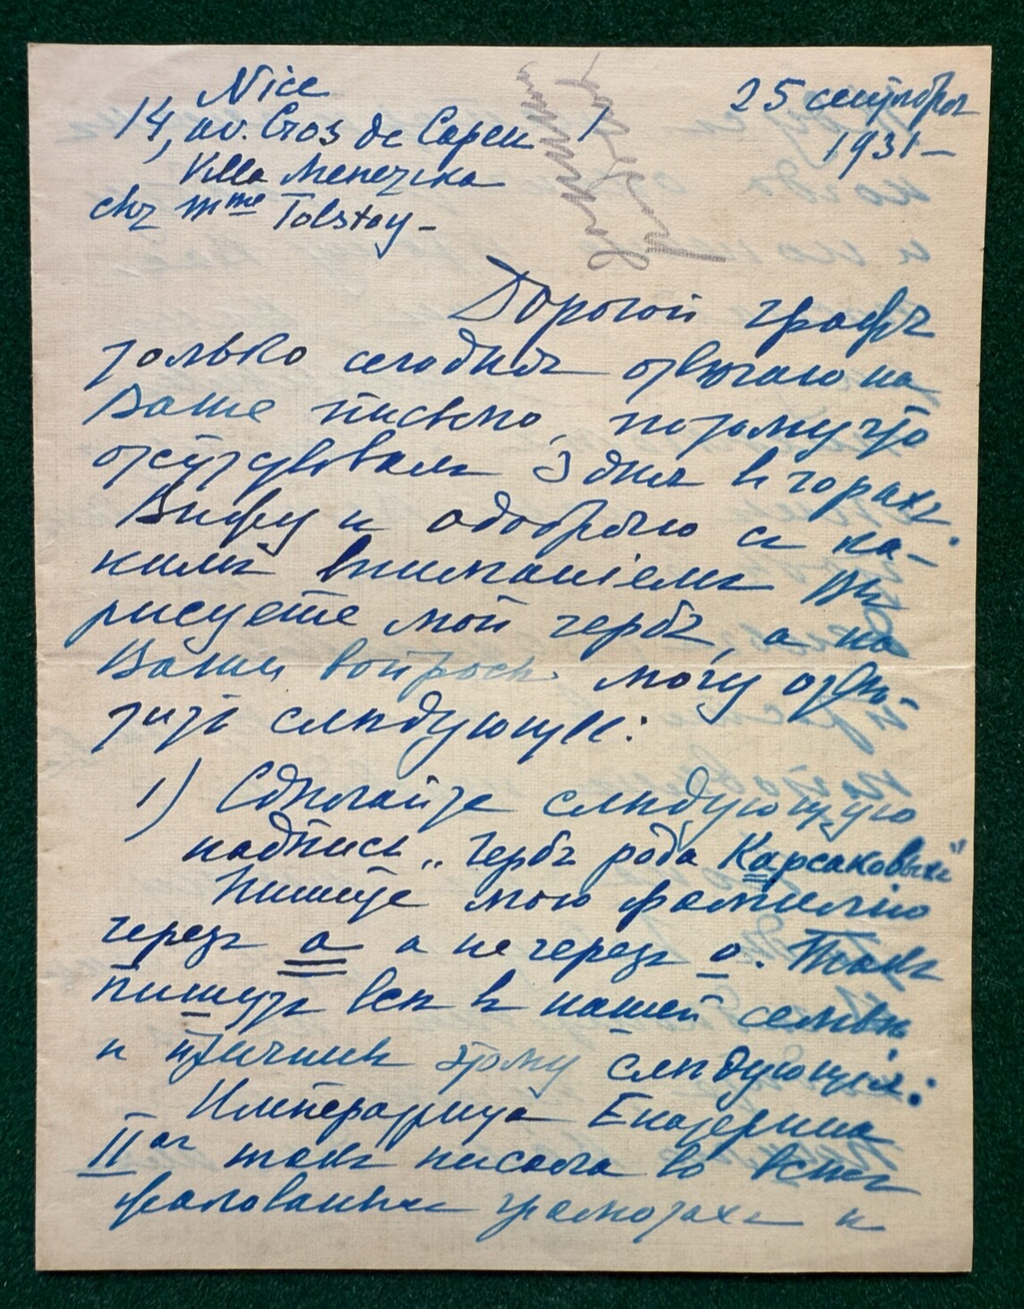 Nice
14, av. Cros de Capeu
Villa Menezina
chz Mme Tolstoy. -
25 сентября
1931 -
Дорогой графъ
только сегодня отвѣчаю на
Ваше письмо, потому что
отсутствовалъ 3 дня въ горахъ.
Вижу и одобряю съ ка-
кимъ вниманіемъ Вы
рисуете мой гербъ, а на
Ваши вопросы могу отвѣ-
тить слѣдующее:
1) Сдѣлайте слѣдующую
надпись „Гербъ рода Карсаковыхъ"
Пишите мою фамилію
черезъ а а не черезъ о. Такъ
пишутъ всѣ въ нашей семьѣ
и причина этому слѣдующая:
Императрица Екатерина
IIая такъ писала во всѣхъ
жалованныхъ грамотахъ и